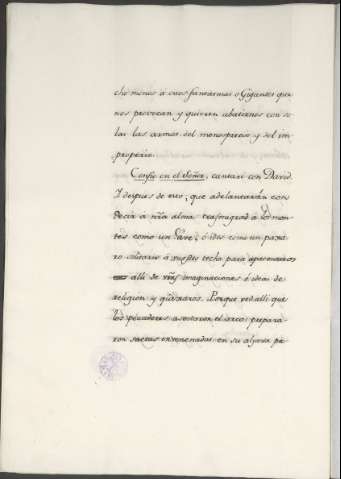 cho menos à esos fantasmas o Gigantes que
nos provocan y quieren abatirnos con so
las las armas del menosprecio y del im
properio.
Confio en el Señor, cantarè con David.
Y despues de eso, que adelantarán con
decir à ntra alma: trasmigrad à los mon
tes como un Pare, ò idos como un paxa
ro solitario à vuestro techo para apacentaros
alli de vtras imaginaciones è ideas de
religion y quixotes. Porque ved alli que
los pecadores asestaron el arco: prepara
ron saetas envenenadas en su aljava pa